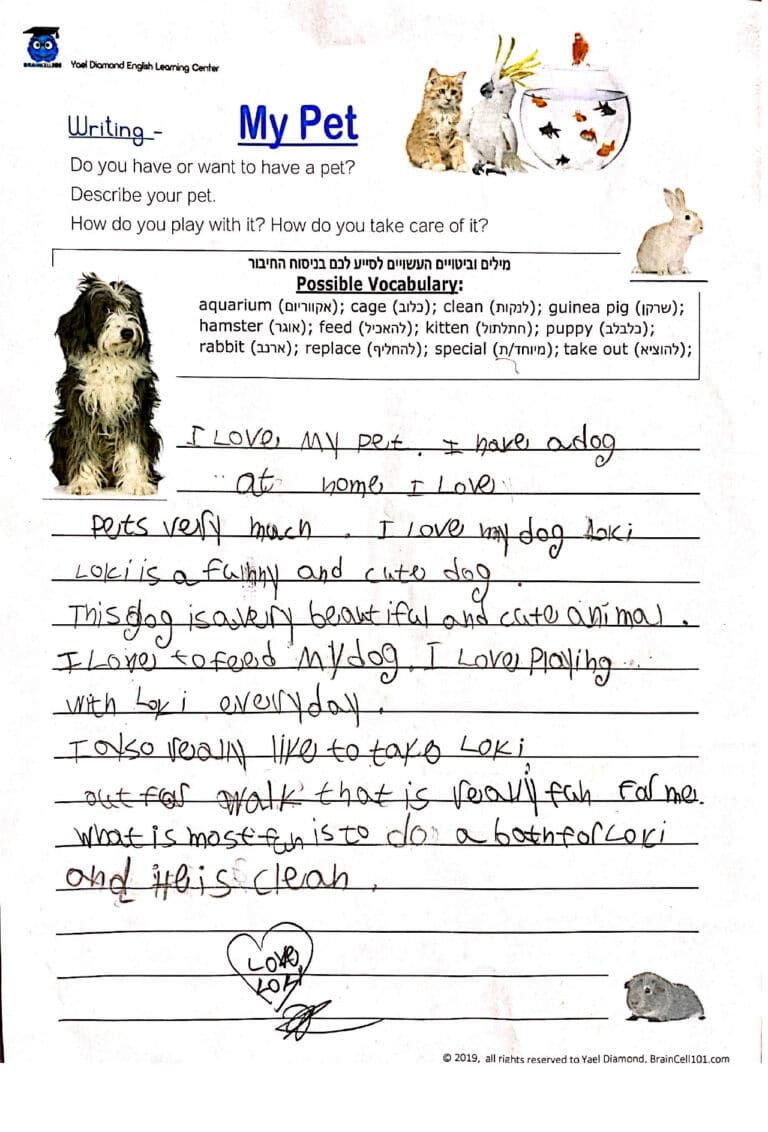 BRAINCELL101
Yael Diamond English Learning Center
Writing - My Pet
Do you have or want to have a pet?
Describe your pet.
How do you play with it? How do you take care of it?
מילים וביטויים העשויים לסייע לכם בניסוח החיבור
Possible Vocabulary:
aquarium (אקווריום); cage (כלוב); clean (לנקות); guinea pig (שרקן);
hamster (אוגר); feed (להאכיל); kitten (חתלתול); puppy (כלבלב);
rabbit (ארנב); replace (להחליף); special (מיוחד/ת); take out (להוציא);
I Love My pet. I have a dog
at home I Love
pets very much. I love my dog Loki
Loki is a funny and cute dog.
This dog is a very beautiful and cute animal.
I Love to feed My dog. I Love Playing
with Loki everyday.
I also really like to take Loki
out for walk that is really fun for me.
what is most fun is to do a bath for Loki
and is clean.
Love
Loki
© 2019, all rights reserved to Yael Diamond, BrainCell101.com